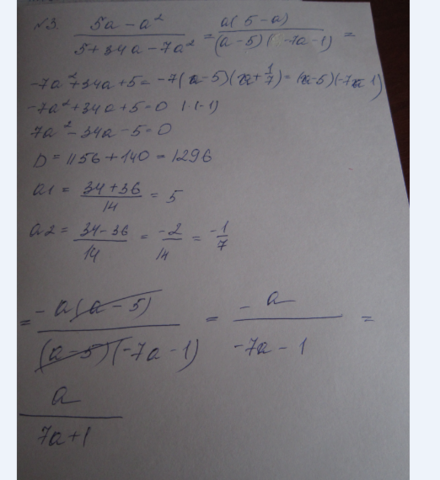 №3. (5a - a²)/(5 + 34a - 7a²) = a(5-a)/((a-5)(-7a-1)) =
-7a² + 34a + 5 = -7(a-5)(a+1/7) = (a-5)(-7a-1)
-7a² + 34a + 5 = 0 | (-1)
7a² - 34a - 5 = 0
D = 1156 + 140 = 1296
a1 = (34+36)/14 = 5
a2 = (34-36)/14 = -2/14 = -1/7
= -a(a-5)/((a-5)(-7a-1)) = -a/(-7a-1) =
a/(7a+1)